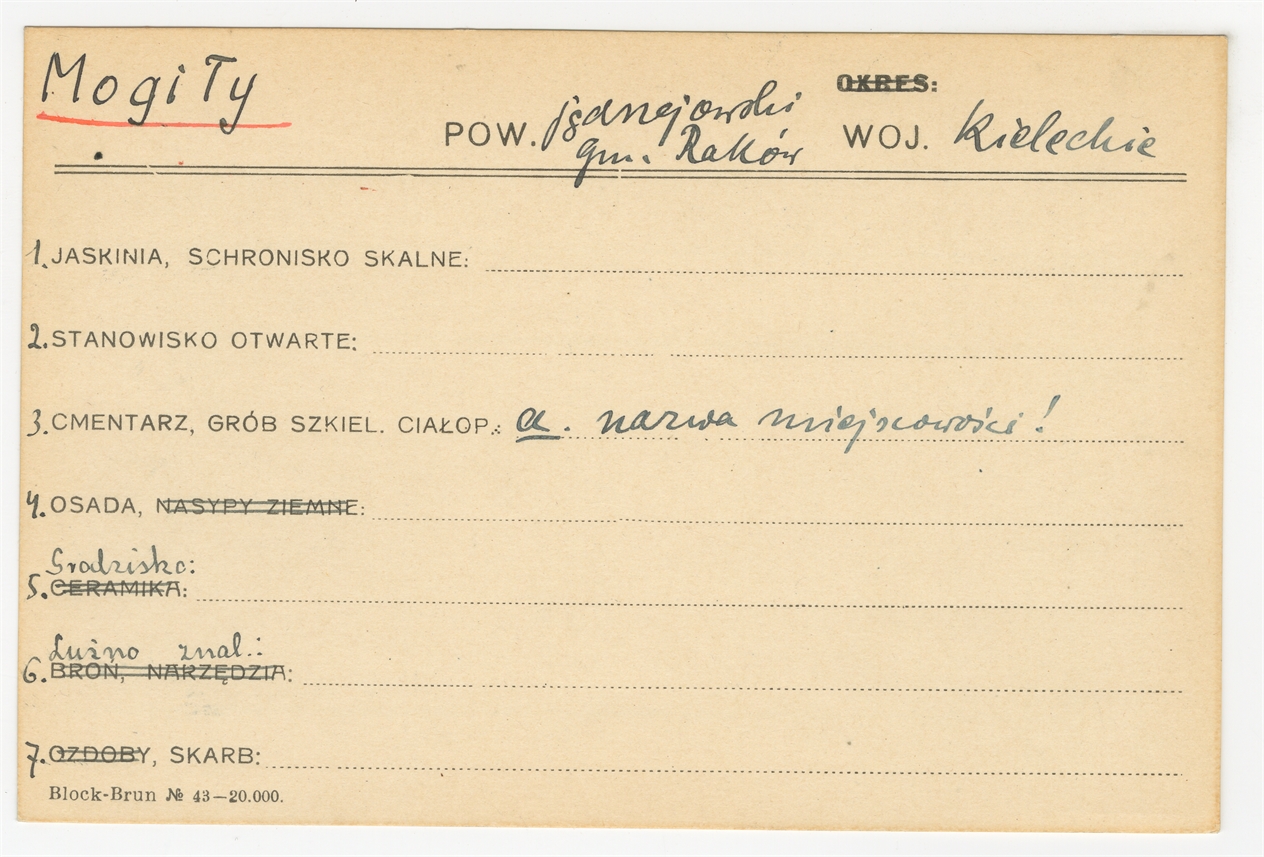 Mogiły
OKRES:
POW. jędrzejowski WOJ. Kieleckie
gm. Raków
1. JASKINIA, SCHRONISKO SKALNE:
2. STANOWISKO OTWARTE:
3. CMENTARZ, GRÓB SZKIEL. CIAŁOP.: a. nazwa miejscowości!
4. OSADA, NASYPY ZIEMNE:
Grodzisko:
5. CERAMIKA:
Luźno znal.:
6. BROŃ, NARZĘDZIA:
7. OZDOBY, SKARB:
Block-Brun № 43—20.000.